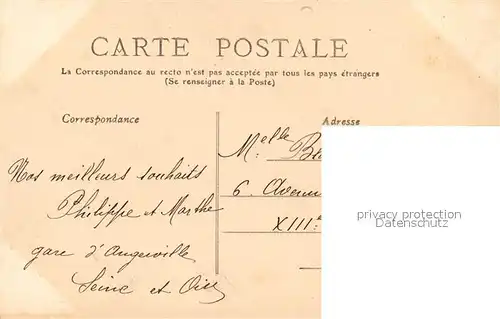 CARTE POSTALE
La Correspondance au recto n'est pas acceptée par tous les pays étrangers
(Se renseigner à la Poste)
Correspondance
Adresse
Nos meilleurs souhaits
Philippe et Marthe
gare d'Angerville
Seine et Oise
Melle
6. Avenu
XIII:e
privacy protection
Datenschutz